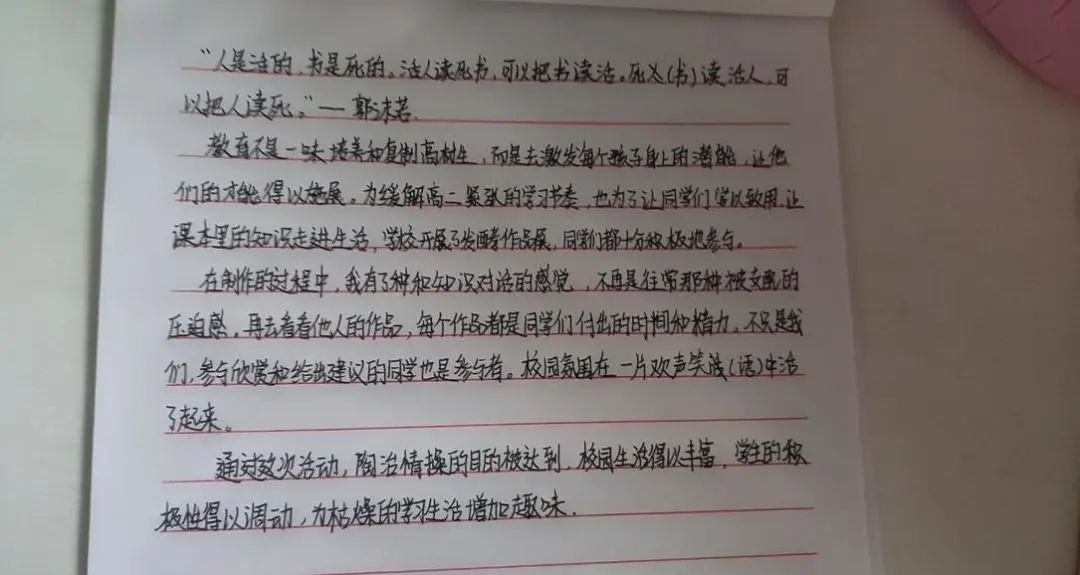 “人是活的，书是死的。活人读死书，可以把书读活。死人(书)读活人，可
以把人读死。”—郭沫若.
教育不是一味培养和复制高材生，而是去激发每个孩子身上的潜能，让他
们的才能得以施展。为缓解高二紧张的学习节奏，也为了让同学们学以致用，让
课本里的知识走进生活，学校开展了发酵作品展，同学们都十分积极地参与。
在制作的过程中，我有了种和知识对话的感觉，不再是往常那种被支配的
压迫感。再去看看他人的作品，每个作品都是同学们付出的时间和精力。不只是我
们，参与欣赏和给出建议的同学也是参与者。校园氛围在一片欢声笑(语)中活
了起来。
通过这次活动，陶冶情操的目的被达到，校园生活得以丰富，学生的积
极性得以调动，为枯燥的学习生活增加趣味.